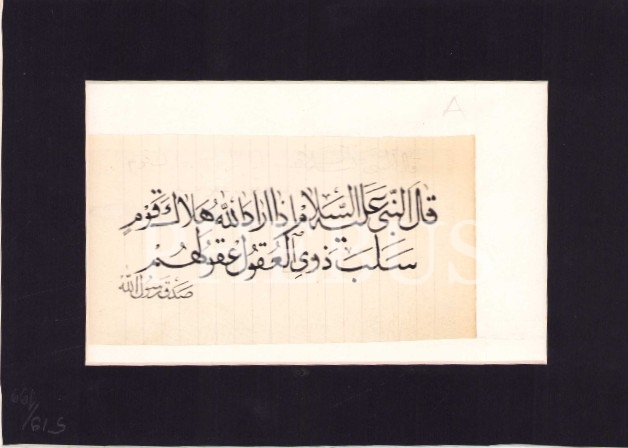 قال النبي عليه السلام اذا اراد الله هلاك قومٍ
سلب ذوي العقول عقولهم
صدق رسول الله